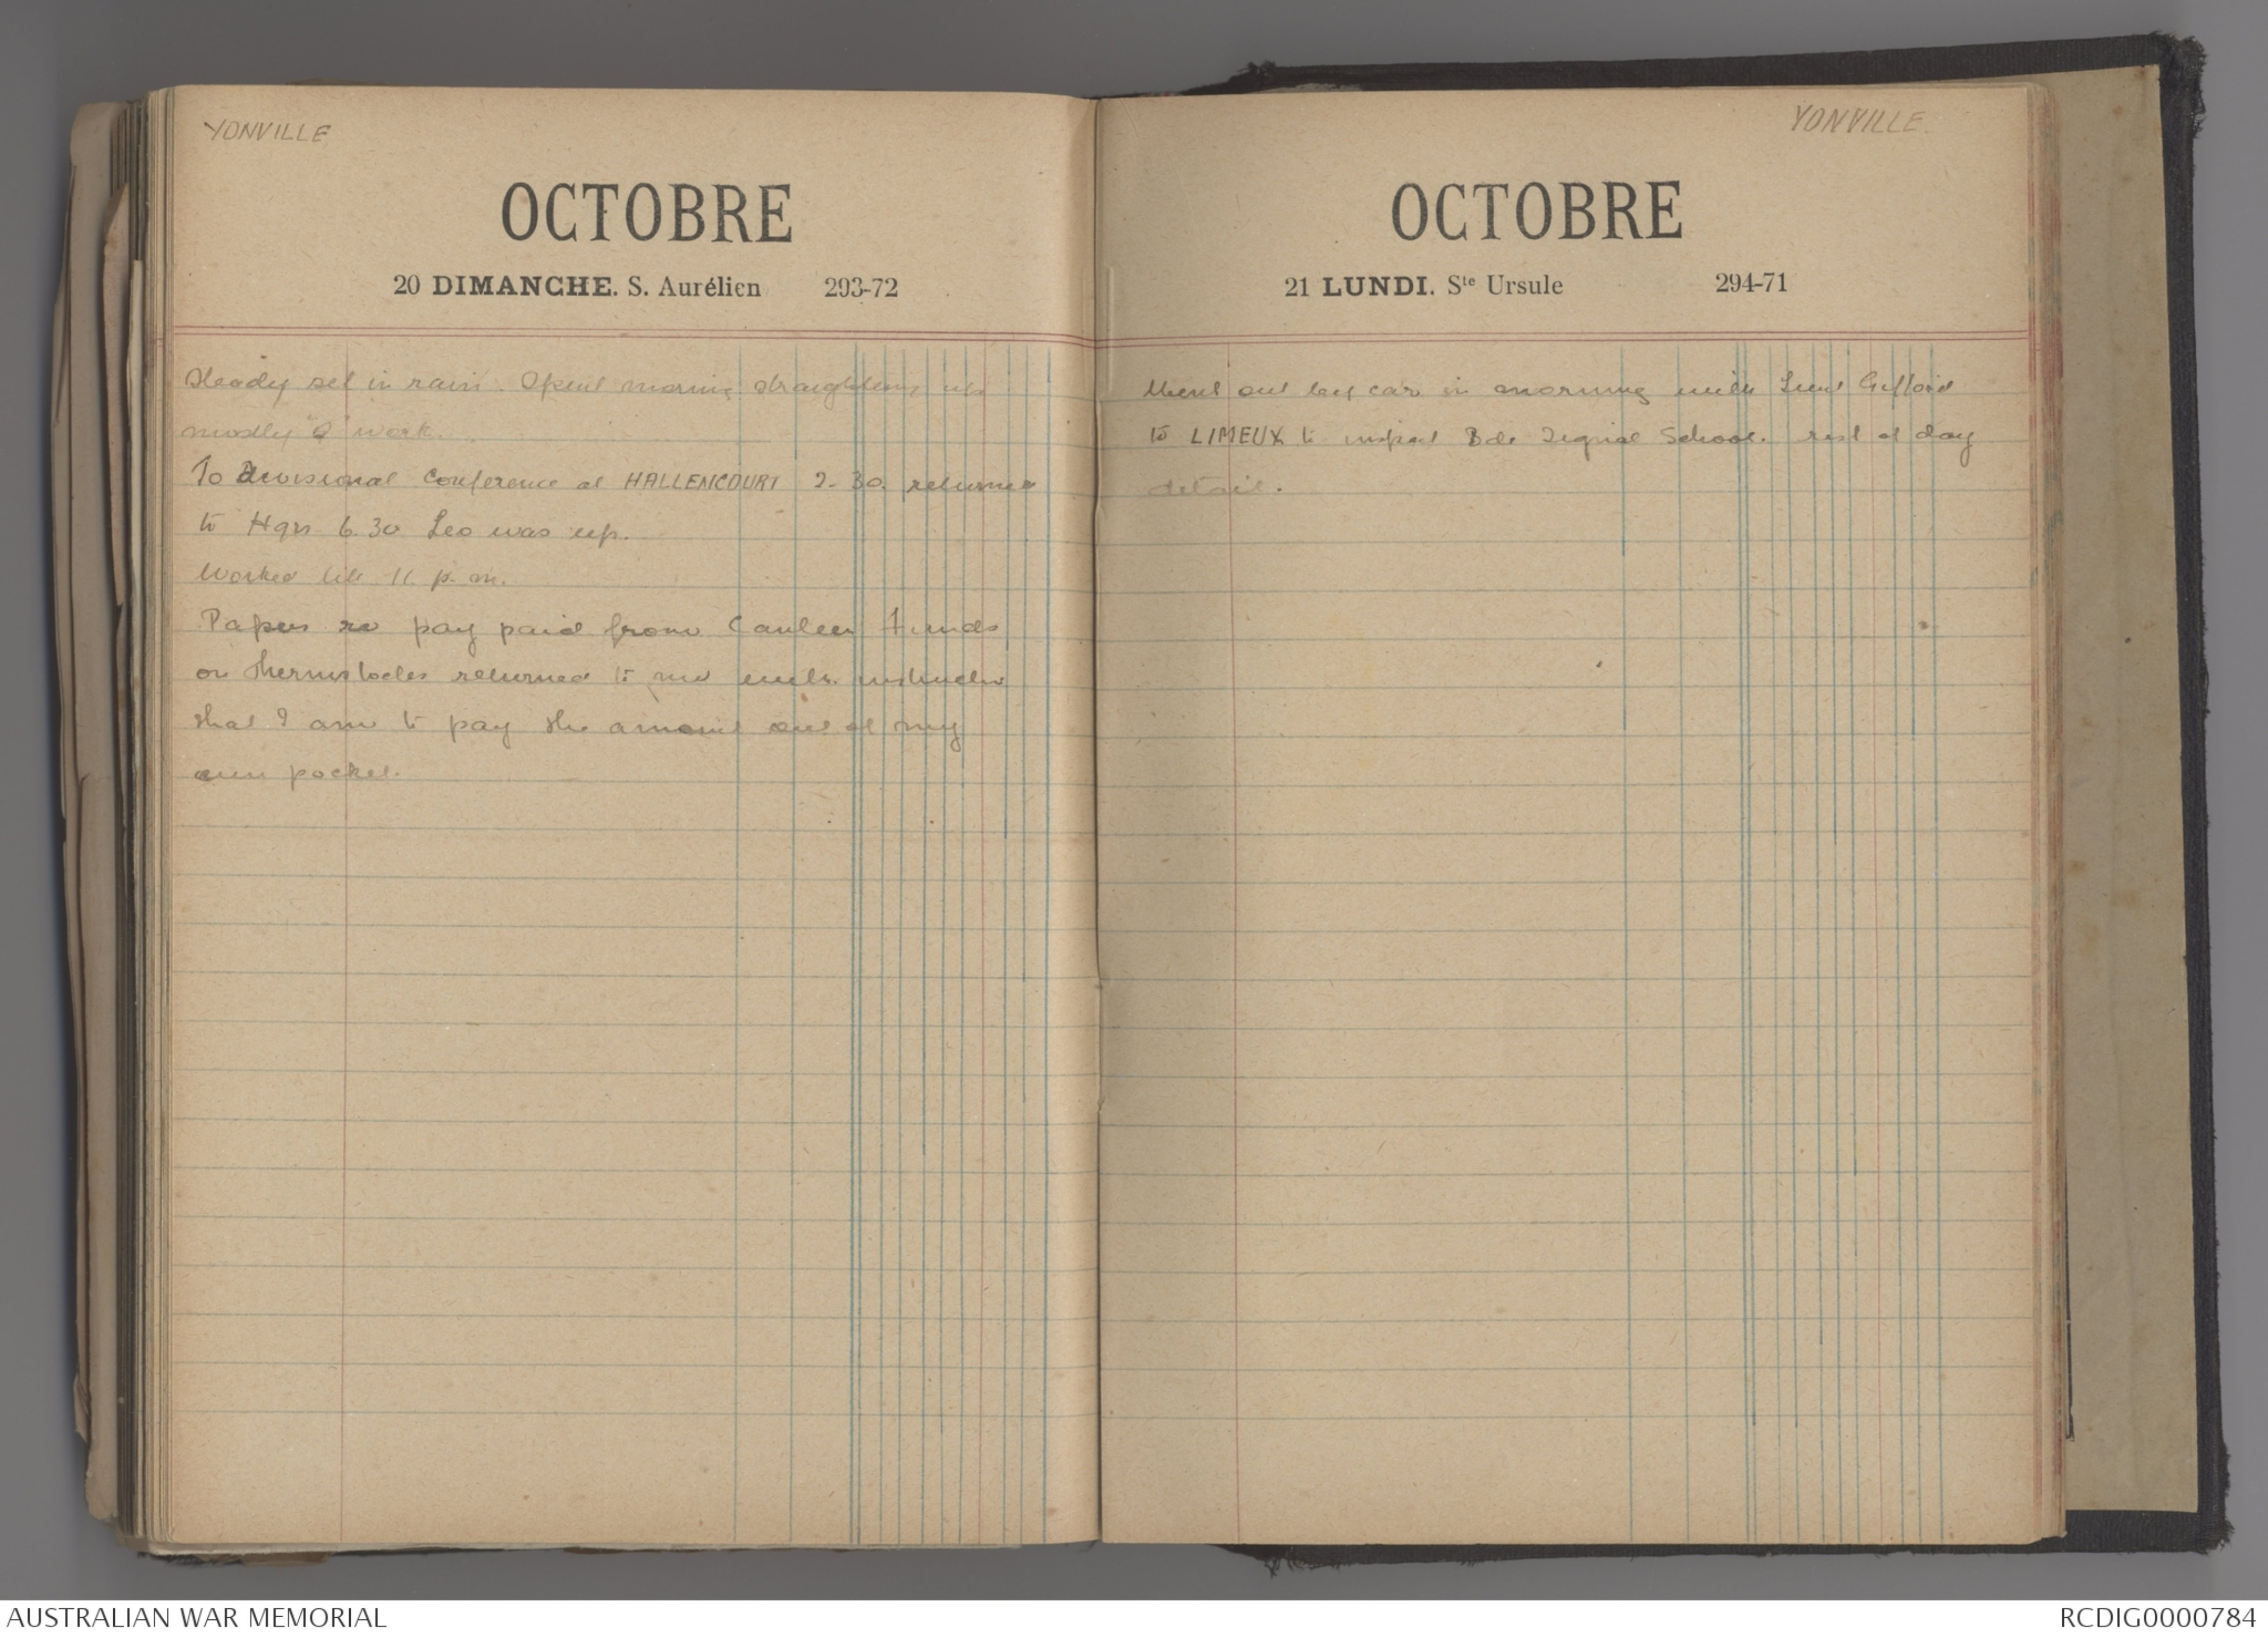 YONVILLE
OCTOBRE
20 DIMANCHE. S. Aurélien 293-72
Steady set in rain. Spent morning straightening up
mostly "Q" work.
To Divisional Conference at HALLENCOURT 2-30. returned
to Hqrs 6.30 Leo was up.
Worked till 11. p.m.
Papers re pay paid from Canteen Funds
on Themistocles returned to me with instruction
that I am to pay the amount out of my
own pocket.
YONVILLE.
OCTOBRE
21 LUNDI. Ste Ursule 294-71
Went out by car in morning with Lieut Gifford
to LIMEUX to inspect Bde Signal School. rest of day
detail.
AUSTRALIAN WAR MEMORIAL
RCDIG0000784